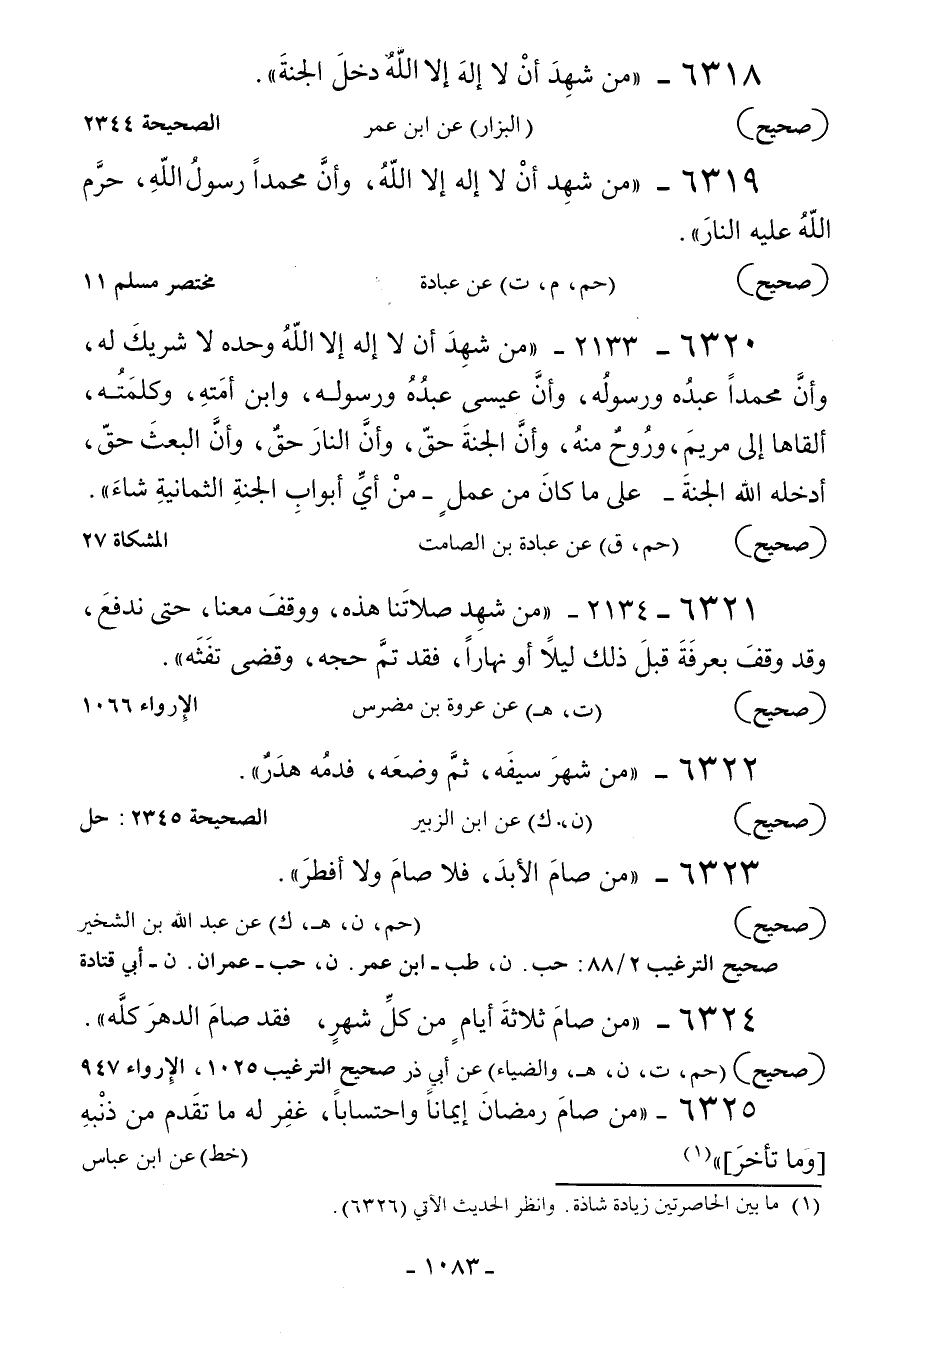 ٦٣١٨ - «من شهِدَ أنْ لا إلهَ إلا اللَّهُ دخلَ الجنةَ».
(صحيح) (البزار) عن ابن عمر الصحيحة ٢٣٤٤
٦٣١٩ - «من شهِد أنْ لا إله إلا اللّهُ، وأنَّ محمداً رسولُ اللّهِ، حرَّم
اللّهُ عليه النارَ».
(صحيح) (حم، م، ت) عن عبادة مختصر مسلم ١١
٦٣٢٠ - ٢١٣٣ - «من شهِدَ أن لا إله إلا اللّهُ وحده لا شريكَ له،
وأنَّ محمداً عبدُه ورسولُه، وأنَّ عيسى عبدُهُ ورسولـه، وابن أمَتهِ، وكلمَتُـه،
ألقاها إلى مريمَ، ورُوحٌ منهُ، وأنَّ الجنةَ حقّ، وأنَّ النارَ حقٌ، وأنَّ البعثَ حقّ،
أدخله الله الجنةَ - على ما كانَ من عملٍ - منْ أيِّ أبوابِ الجنةِ الثمانيةِ شاءَ».
(صحيح) (حم، ق) عن عبادة بن الصامت المشكاة ٢٧
٦٣٢١ - ٢١٣٤ - «من شهِد صلاتَنا هذه، ووقفَ معنا، حتى ندفعَ،
وقد وقفَ بعرفَةَ قبلَ ذلك ليلًا أو نهاراً، فقد تمَّ حجه، وقضى تفَثَه».
(صحيح) (ت، هـ) عن عروة بن مضرس الإرواء ١٠٦٦
٦٣٢٢ - «من شهرَ سيفَه، ثمَّ وضعَه، فدمُه هدَرٌ».
(صحيح) (ن، ك) عن ابن الزبير الصحيحة ٢٣٤٥ : حل
٦٣٢٣ - «من صامَ الأبدَ، فلا صامَ ولا أفطرَ».
(صحيح) (حم، ن، هـ، ك) عن عبد الله بن الشخير
صحيح الترغيب ٨٨/٢ : حب. ن، طب - ابن عمر. ن، حب - عمران. ن - أبي قتادة
٦٣٢٤ - «من صامَ ثلاثةَ أيامٍ من كلِّ شهرٍ، فقد صامَ الدهرَ كلَّه».
(صحيح) (حم، ت، ن، هـ، والضياء) عن أبي ذر صحيح الترغيب ١٠٢٥، الإرواء ٩٤٧
٦٣٢٥ - «من صامَ رمضانَ إيماناً واحتساباً، غفِر له ما تقَدم من ذنْبهِ
[وَما تأخرَ]»(١) (خط) عن ابن عباس
(١) ما بين الحاصرتين زيادة شاذة. وانظر الحديث الآتي (٦٣٢٦).
- ١٠٨٣ -